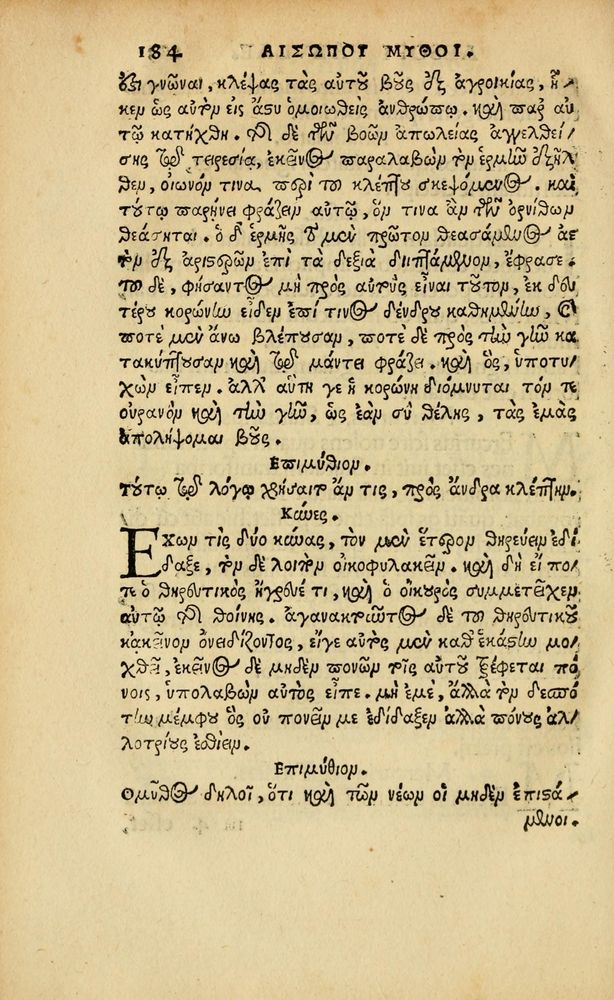 184 ΑΙΣΩΠΟΥ ΜΥΘΟΙ.
γνῶναι, κλέψας τὰς αὐτοῦ βοῦς ἐξ ἀγροικίας, ἧ
κεν ὡς αὐτὸν εἰς ἄστυ ὁμοιωθεὶς ἀνθρώπῳ. καὶ παρ' αὐ
τῷ κατήχθη. τῆς δὲ τῶν βοῶν ἀπωλείας ἀγγελθεί/
σης τῷ τειρεσίᾳ, ἐκεῖνος παραλαβὼν τὸν ἑρμῆν ἐξῆλ
θεν, οἰωνόν τινα περὶ τοῦ κλέπτου σκεψόμενος. καὶ
τούτῳ παρῄνει φράζειν αὐτῷ, ὅν τινα ἂν τῶν ὀρνίθων
θεάσηται. ὁ δ' ἑρμῆς τὸ μὲν πρῶτον θεασάμενος ἀε
τὸν ἐξ ἀριστερῶν ἐπὶ τὰ δεξιὰ διιπτάμενον, ἔφρασε.
τοῦ δὲ, φήσαντος μὴ πρὸς αὐτοὺς εἶναι τοῦτον, ἐκ δευ
τέρου κορώνην εἶδεν ἐπί τινος δένδρου καθημένην, καὶ
ποτὲ μὲν ἄνω βλέπουσαν, ποτὲ δὲ πρὸς τὴν γῆν κα
τακύπτουσαν καὶ τῷ μάντει φράζει. καὶ ὃς, ὑποτυ/
χὼν εἶπεν. ἀλλ' αὕτη γε ἡ κορώνη διόμνυται τόν τε
οὐρανὸν καὶ τὴν γῆν, ὡς ἐὰν σὺ θέλῃς, τὰς ἐμὰς
ἀπολήψομαι βοῦς.
Ἐπιμύθιον.
Τούτῳ τῷ λόγῳ χρήσαιτ' ἄν τις, πρὸς ἄνδρα κλέπτην.
Κύνες.
Ἔχων τὶς δύο κύνας, τὸν μὲν ἕτερον θηρεύειν ἐδί
δαξε, τὸν δὲ λοιπὸν οἰκοφυλακεῖν. καὶ δὴ εἴ πο/
τε ὁ θηρευτικὸς ἤγρευέ τι, καὶ ὁ οἰκουρὸς συμμετεῖχεν
αὐτῷ τῆς θοίνης. ἀγανακτοῦντος δὲ τοῦ θηρευτικοῦ
κἀκεῖνον ὀνειδίζοντος, εἴγε αὐτὸς μὲν καθ' ἑκάστην μο/
χθεῖ, ἐκεῖνος δὲ μηδὲν πονῶν τοῖς αὐτοῦ τρέφεται πό/
νοις, ὑπολαβὼν αὐτὸς εἶπε. μὴ ἐμὲ, ἀλλὰ τὸν δεσπό
την μέμφου ὃς οὐ πονεῖν με ἐδίδαξεν ἀλλὰ πόνους ἀλ/
λοτρίους ἐσθίειν.
Ἐπιμύθιον.
Ὁ μῦθος δηλοῖ, ὅτι καὶ τῶν νέων οἱ μηδὲν ἐπιστά/
μενοι.